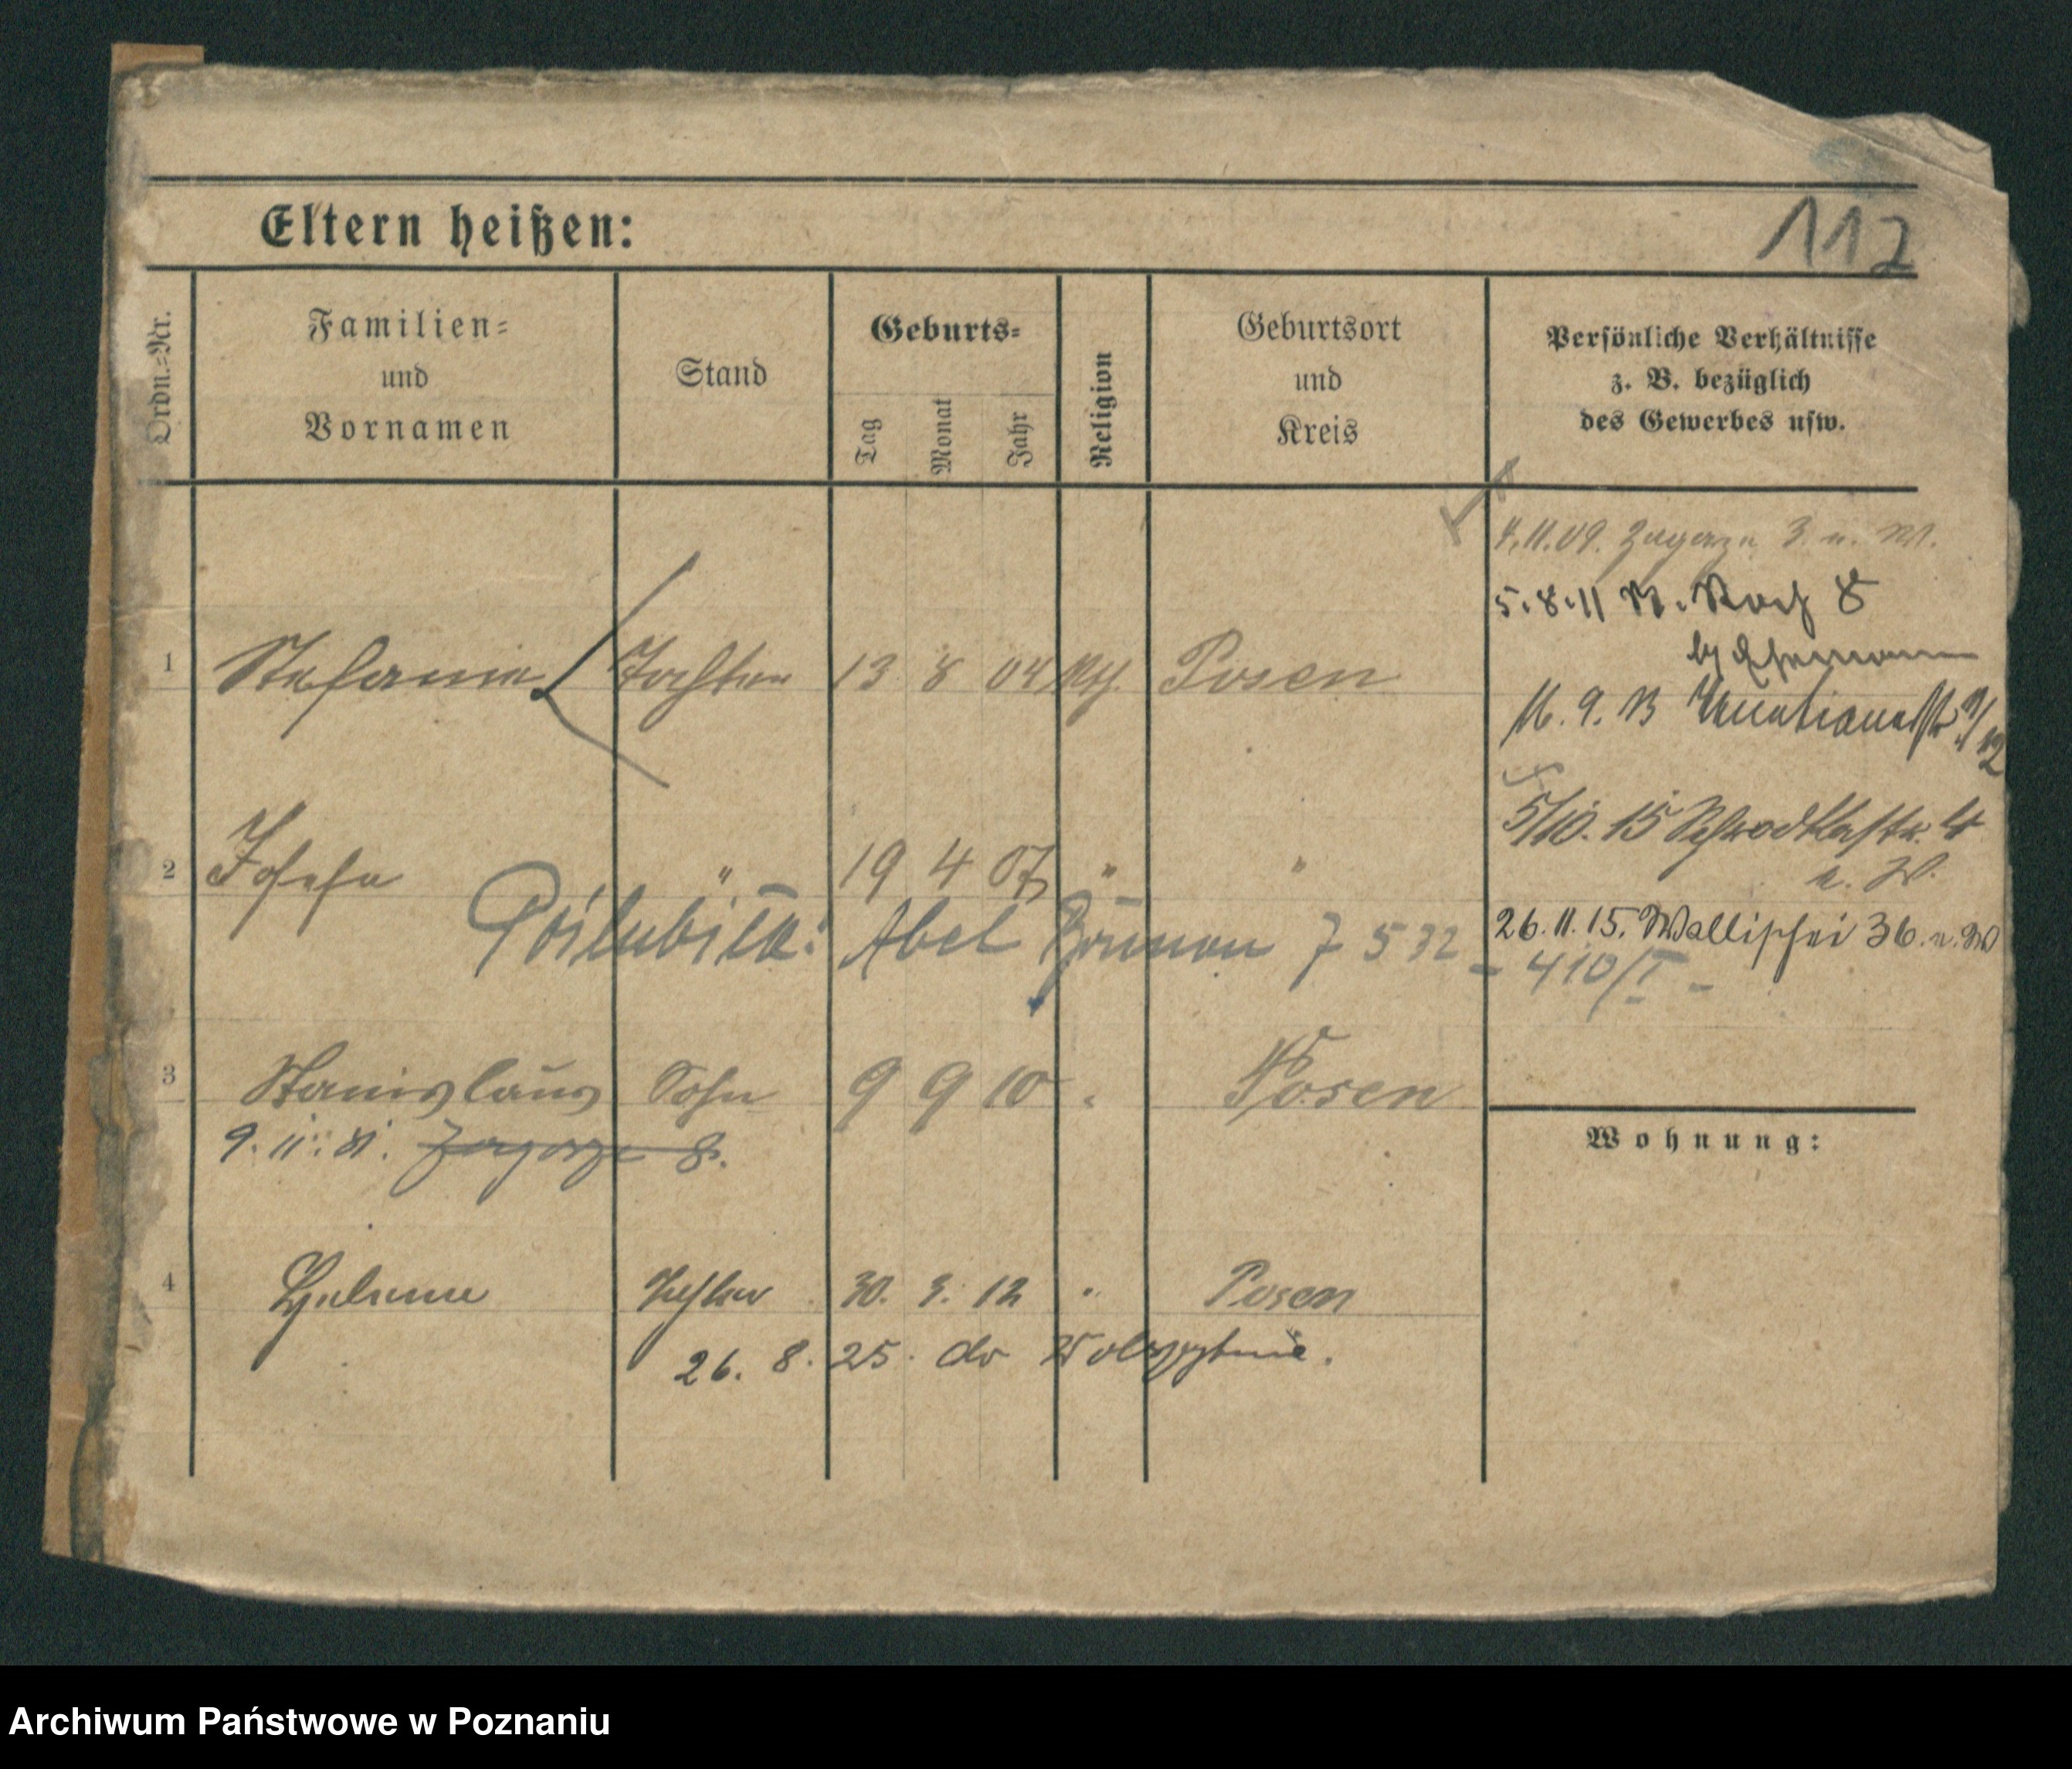 Eltern heißen:
112
Ordn.=Nr.
Familien=
und
Vornamen
Stand
Geburts=
Tag
Monat
Jahr
Religion
Geburtsort
und
Kreis
Persönliche Verhältnisse
z. B. bezüglich
des Gewerbes usw.
4.11.09. Zagorze 3. u. W.
5.8.11 St. Roch 8
by Ehemann
16. 9. 13
1 Stefanie Tochter 13 8 04 kth. Posen
5/10. 15 Schrodkastr. 4
u. W.
2 Josefa " 19 4 07 " "
26.11.15. Wallischei 36. u. W
Abel 7 532 - 410/I -
3 Stanislaus Sohn 9 9 10 " Posen
9. 11. Zagorze 8.
Wohnung:
4 Helene Tochter 30. 3. 12 " Posen
26. 8. 25. do
Archiwum Państwowe w Poznaniu